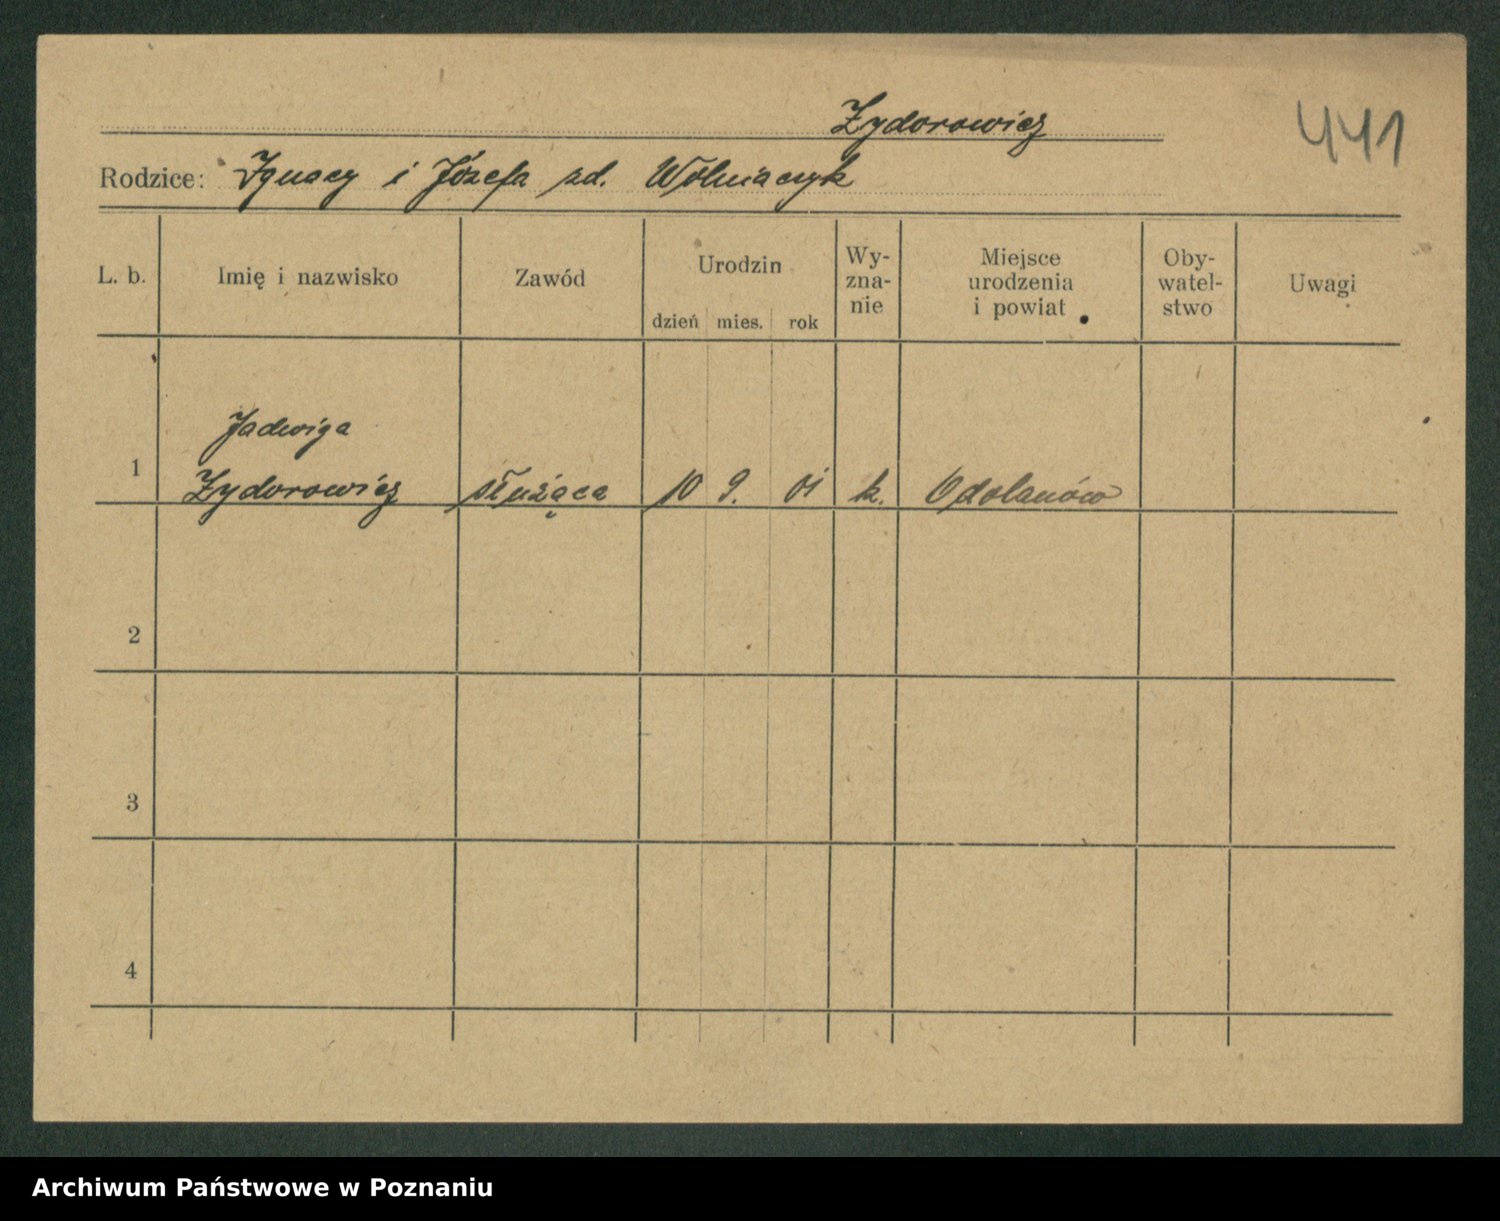 Zydorowicz
441
Rodzice: Ignacy i Józefa zd. Wolniaczyk
L. b.
Imię i nazwisko
Zawód
Urodzin
dzień mies. rok
Wy-
zna-
nie
Miejsce
urodzenia
i powiat
Oby-
watel-
stwo
Uwagi
Jadwiga
1 Zydorowicz służąca 10 9. 01 k. Odolanów
2
3
4
Archiwum Państwowe w Poznaniu